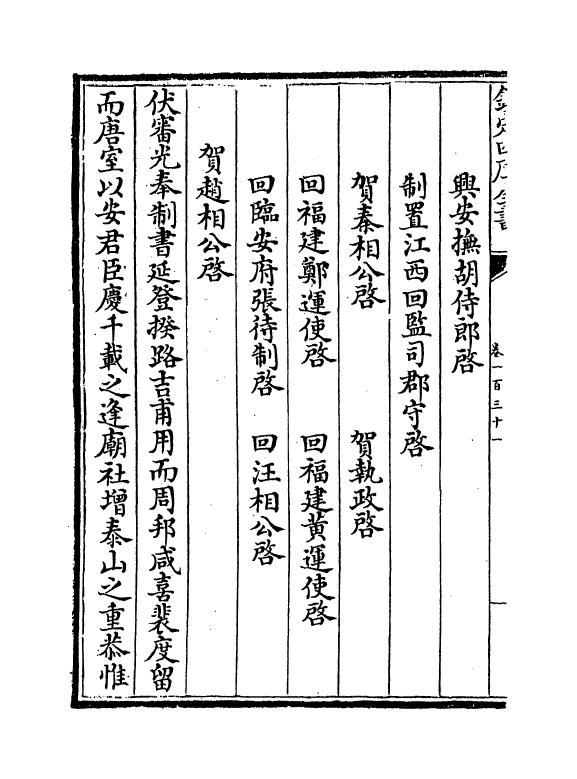 欽定四庫全書
卷一百三十一
興安撫胡侍郎啓
制置江西回監司郡守啓
賀秦相公啓　賀執政啓
回福建鄭運使啓　回福建黄運使啓
回臨安府張待制啓　回汪相公啓
賀趙相公啓
伏審光奉制書延登揆路吉甫用而周邦咸喜裴度留
而唐室以安君臣慶千載之逢廟社增泰山之重恭惟